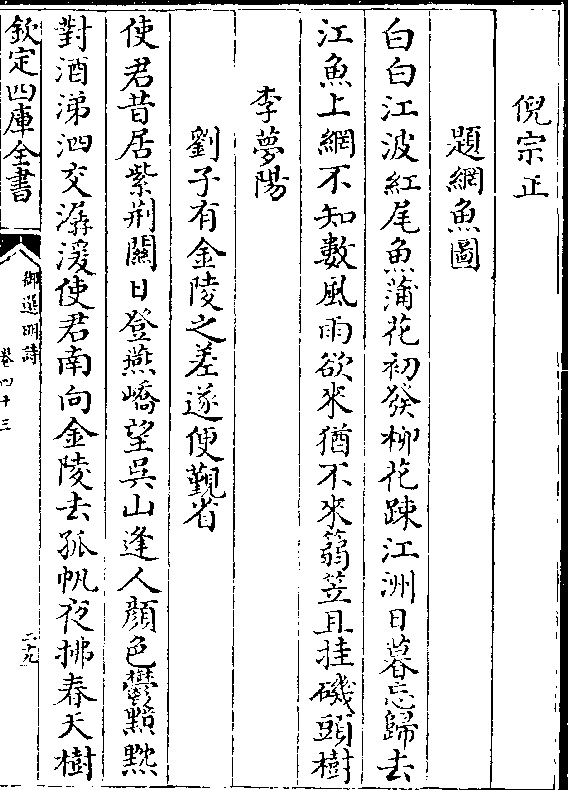 倪宗正
題網魚圖
白白江波紅尾魚蒲花初發柳花踈江洲日暮忘歸去
江魚上網不知數風雨欲來猶不來篛笠且挂磯頭樹
李夢陽
劉子有金陵之差遂便覲省
使君昔居紫荆關日登燕嶠望吳山逢人顔色鬱黯黮
對酒涕泗交潺湲使君南向金陵去孤帆夜拂春天樹
欽定四庫全書
御選明詩
卷四十三
二九